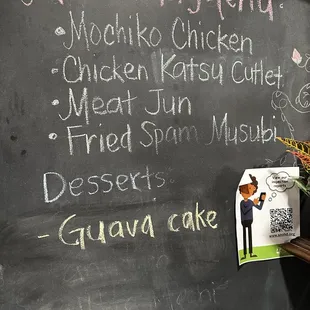 Menu:
• Mochiko Chicken
• Chicken Katsu Cutlet
• Meat Jun
• Fried Spam Musubi
Desserts:
- Guava cake